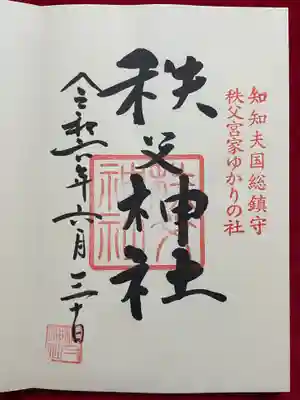 知知夫国総鎮守
秩父宮家ゆかりの社
秩父神社
令和六年六月三十日